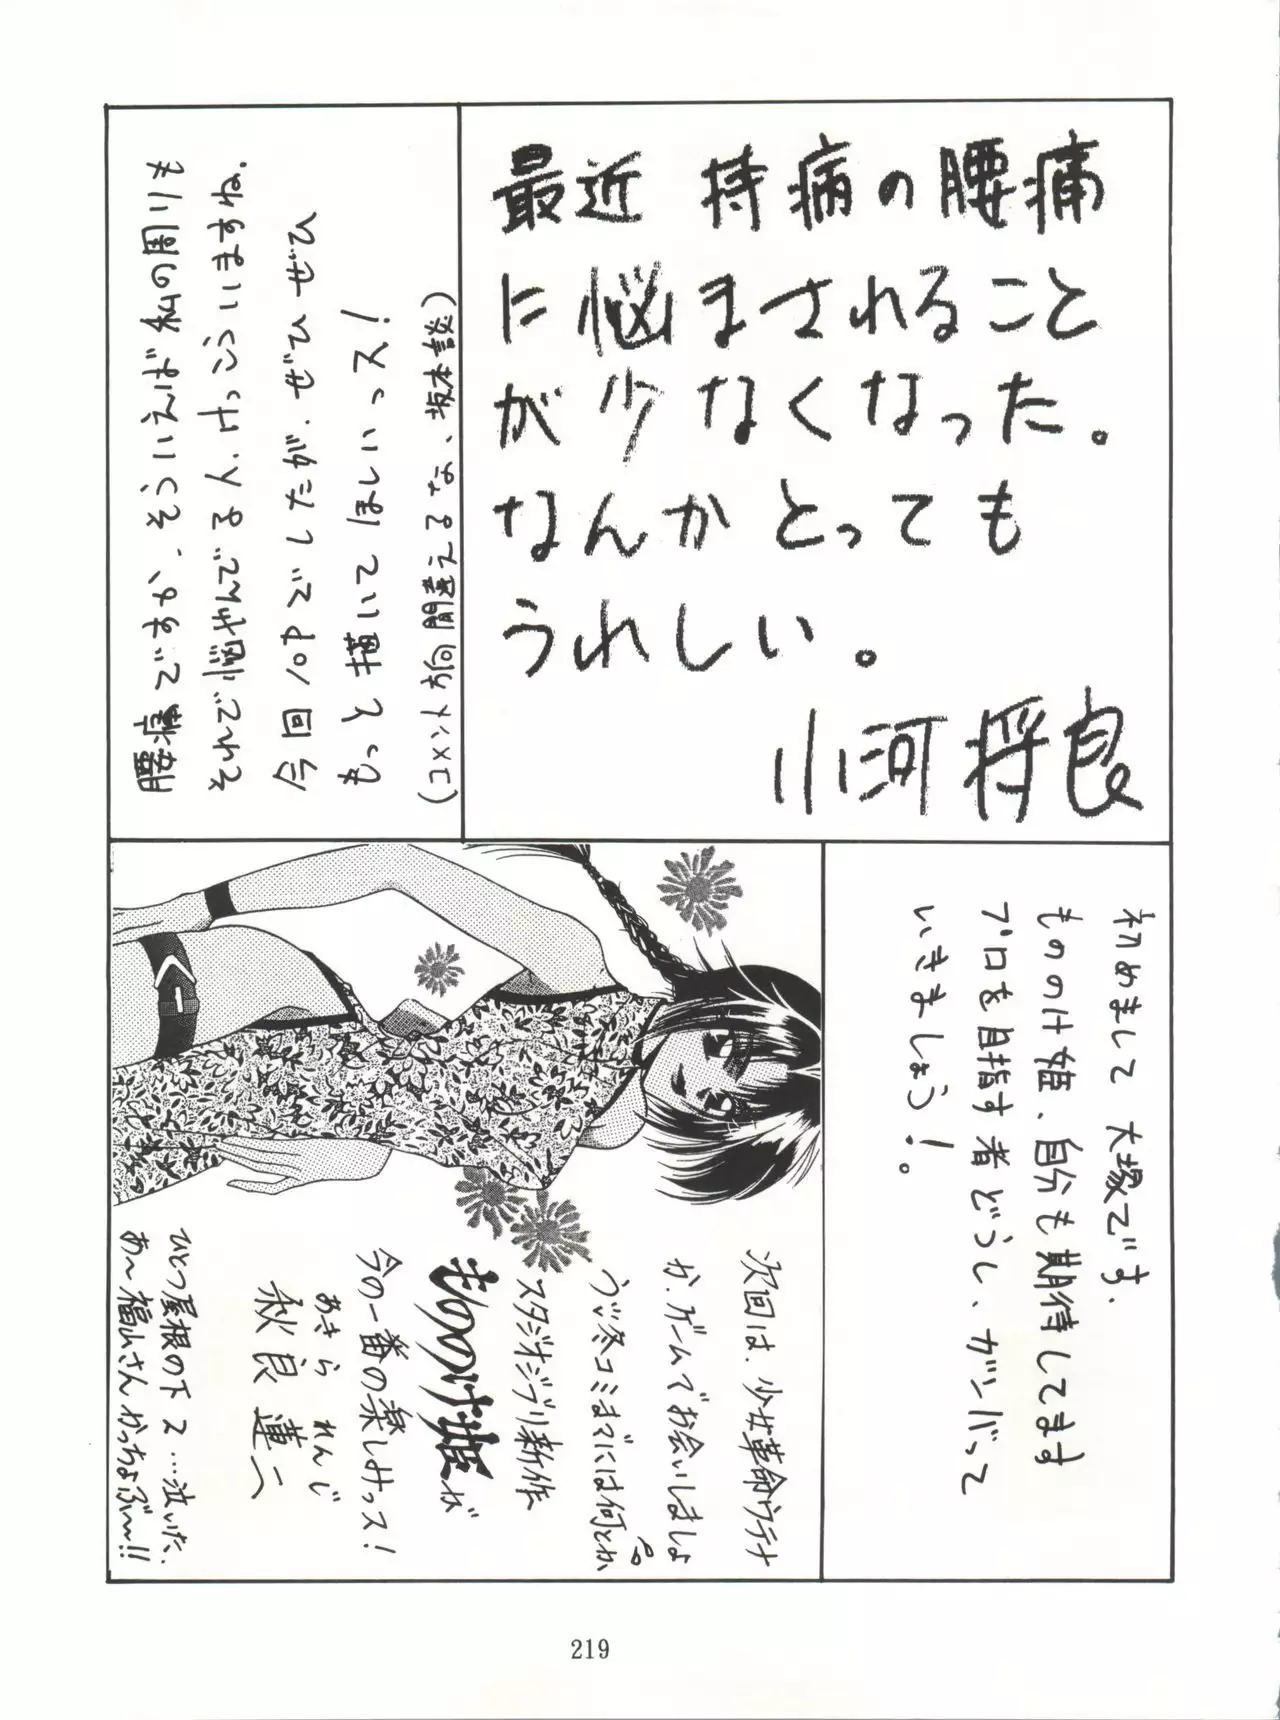 最近 持病の腰痛
に悩まされること
が少なくなった。
なんかとっても
うれしい。
小河将良
腰痛ですか、そういえば私の周りも
それで悩やんでる人、けっこういますね.
今回10Pでしたが、ぜひぜひ
もっと描いてほしいっス!
(コメント方向間違えるな、坂本談)
初めまして 大塚です.
もののけ姫、自分も期待してます
プロを目指す者どうし、ガンバって
いきましょう!。
次回は、少女革命ウテナ
か、ゲームでお会いしましょ
う♡冬コミまでには何とか
スタジオジブリ新作
もののけ姫が
今の一番の楽しみっス!
あきら れんじ
秋良蓮二
ひとつ屋根の下2…泣いた.
あ〜福山さんかっちょぶ〜!!
219